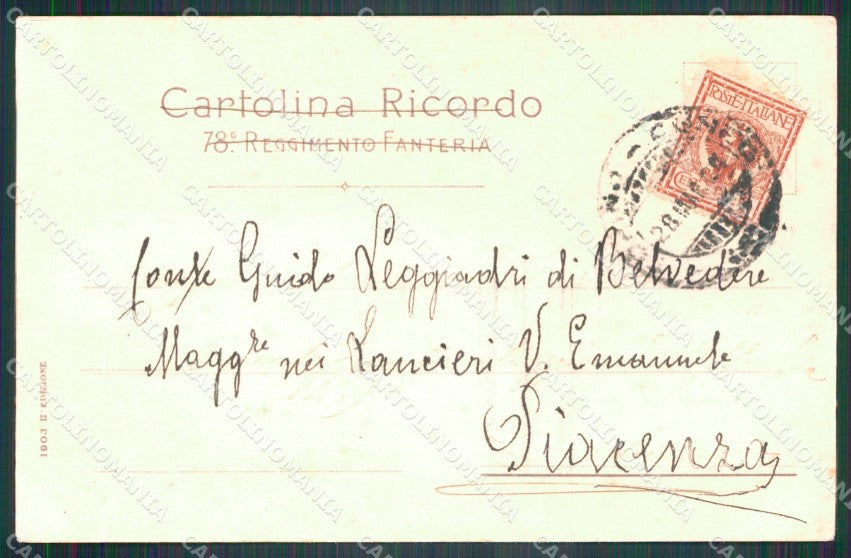 Cartolina Ricordo
78º. REGGIMENTO FANTERIA
POSTE ITALIANE
CUNEO
conte Guido Leggiadri di Belvedere
Maggre nei Lancieri V. Emanuele
Piacenza
1903 IIª EDIZIONE
CARTOLINOMANIA